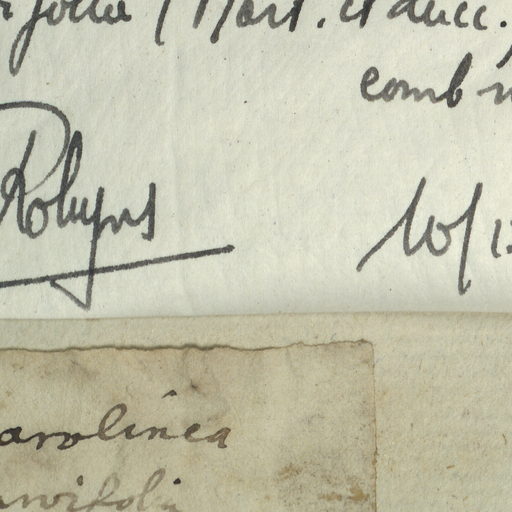 folia (Mart. et Zucc.)
comb
Robyns
10/1
arolinea
arvifolia